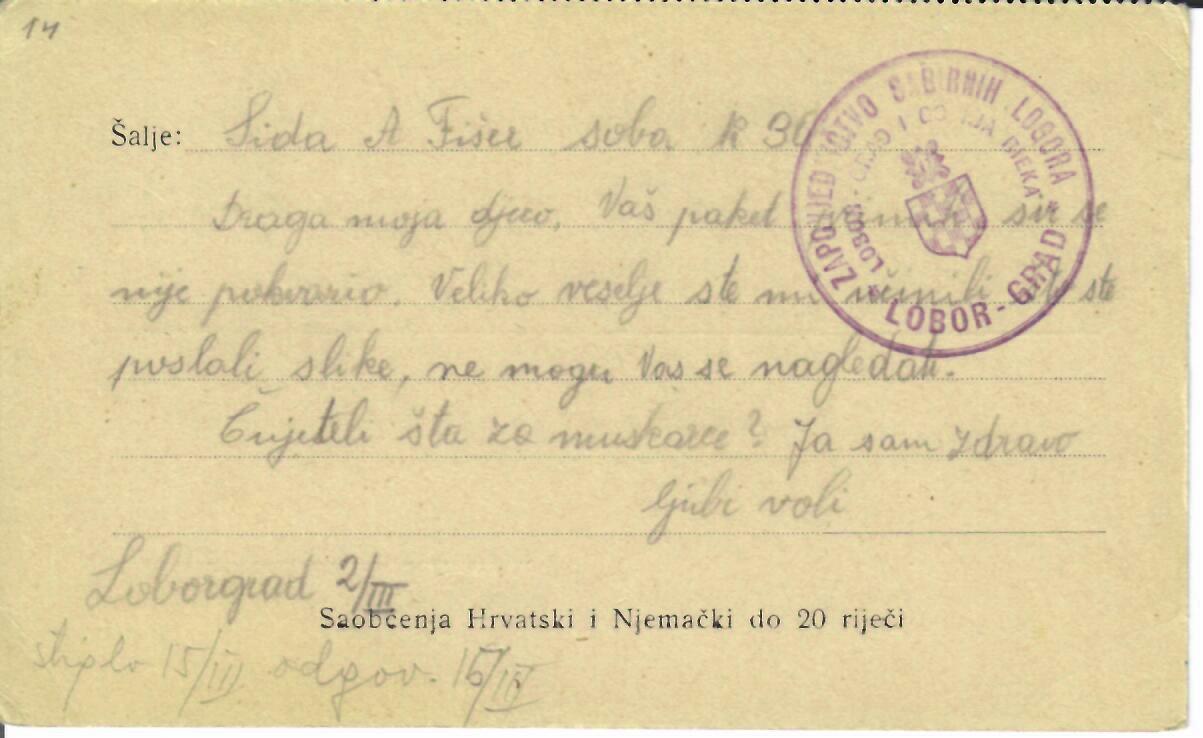 14
Šalje: Sida A Fišer soba k 36
Draga moja djeco, Vaš paket sir se
nije pokvario. Veliko veselje ste mi učinili ste
poslali slike, ne mogu Vas se nagledati.
Čujeteli šta za muškarce? Ja sam zdravo
ljubi voli
Loborgrad 2/III
Saobćenja Hrvatski i Njemački do 20 riječi
stiglo 15/III odgov. 16/III
ZAPOVJEDNIČTVO SABIRNIH LOGORA
LOBOR-GRAD I RIEKA
* LOBOR-GRAD *